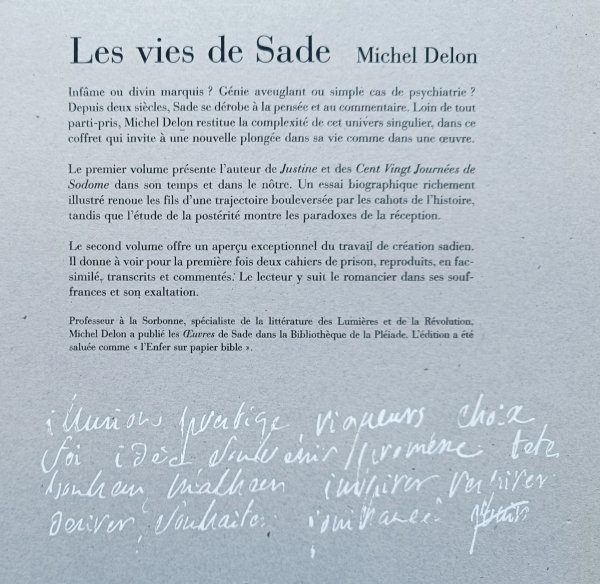 Les vies de Sade Michel Delon
Infâme ou divin marquis ? Génie aveuglant ou simple cas de psychiatrie ?
Depuis deux siècles, Sade se dérobe à la pensée et au commentaire. Loin de tout
parti-pris, Michel Delon restitue la complexité de cet univers singulier, dans ce
coffret qui invite à une nouvelle plongée dans sa vie comme dans une œuvre.
Le premier volume présente l'auteur de Justine et des Cent Vingt Journées de
Sodome dans son temps et dans le nôtre. Un essai biographique richement
illustré renoue les fils d'une trajectoire bouleversée par les cahots de l'histoire,
tandis que l'étude de la postérité montre les paradoxes de la réception.
Le second volume offre un aperçu exceptionnel du travail de création sadien.
Il donne à voir pour la première fois deux cahiers de prison, reproduits, en fac-
similé, transcrits et commentés. Le lecteur y suit le romancier dans ses souf-
frances et son exaltation.
Professeur à la Sorbonne, spécialiste de la littérature des Lumières et de la Révolution,
Michel Delon a publié les Œuvres de Sade dans la Bibliothèque de la Pléiade. L'édition a été
saluée comme « l'Enfer sur papier bible ».
illusions prestige vigueurs choix
foi idée souvenir promène
inspirer